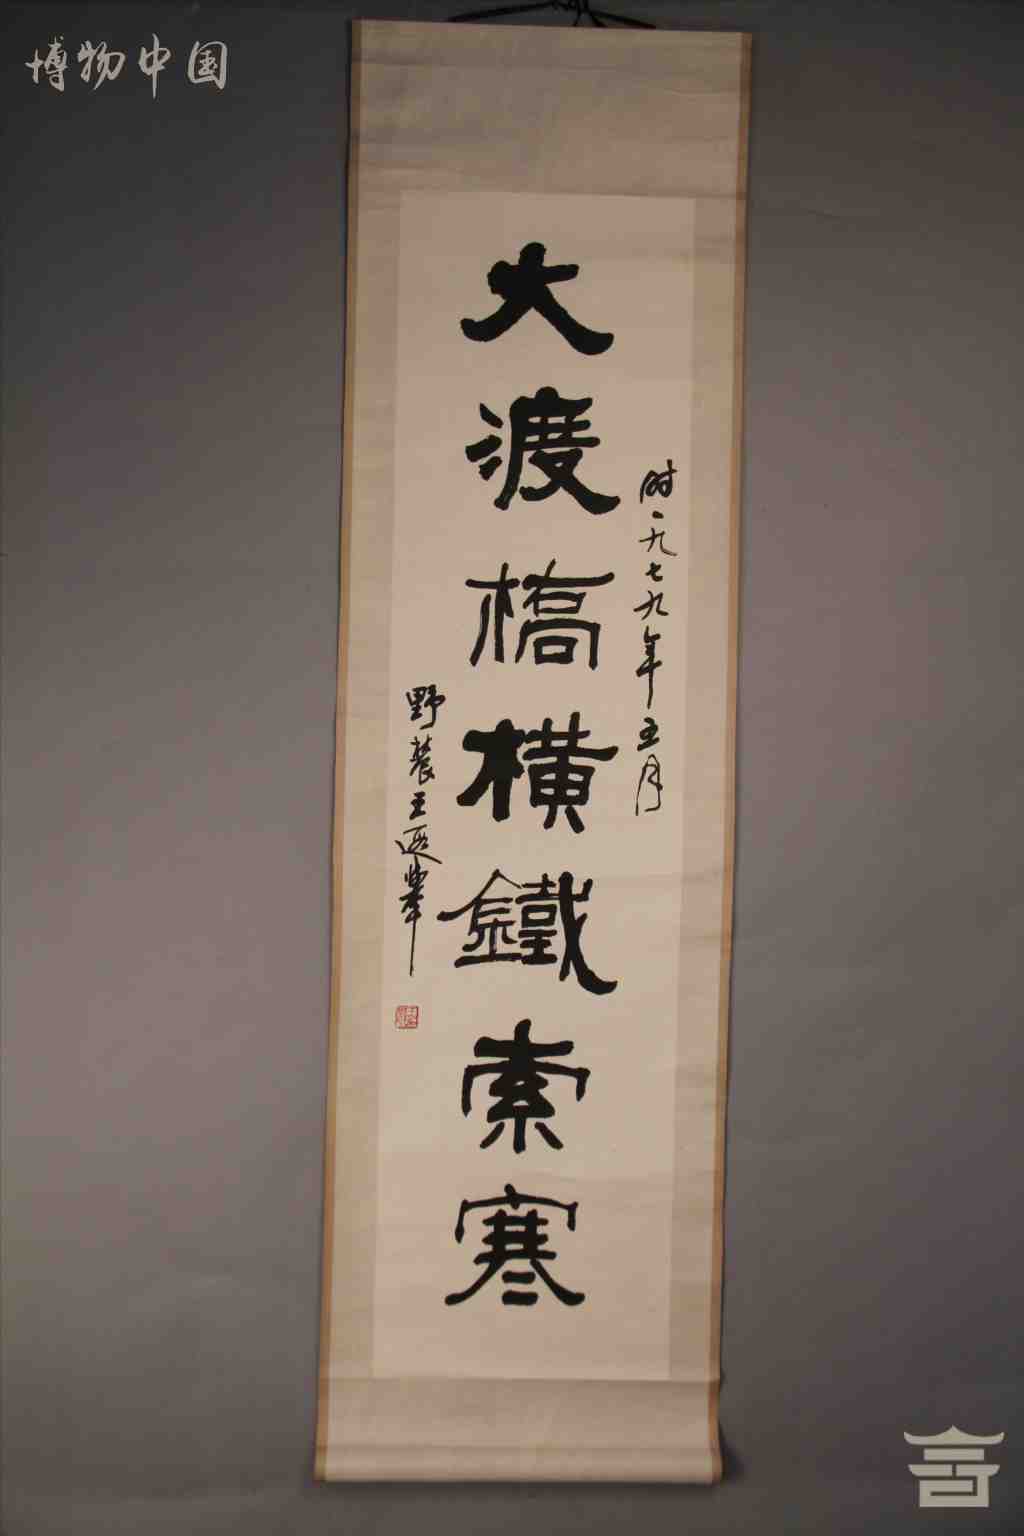 博物中国
时一九七九年五月
大渡橋横鐵索寒
野農王遐舉